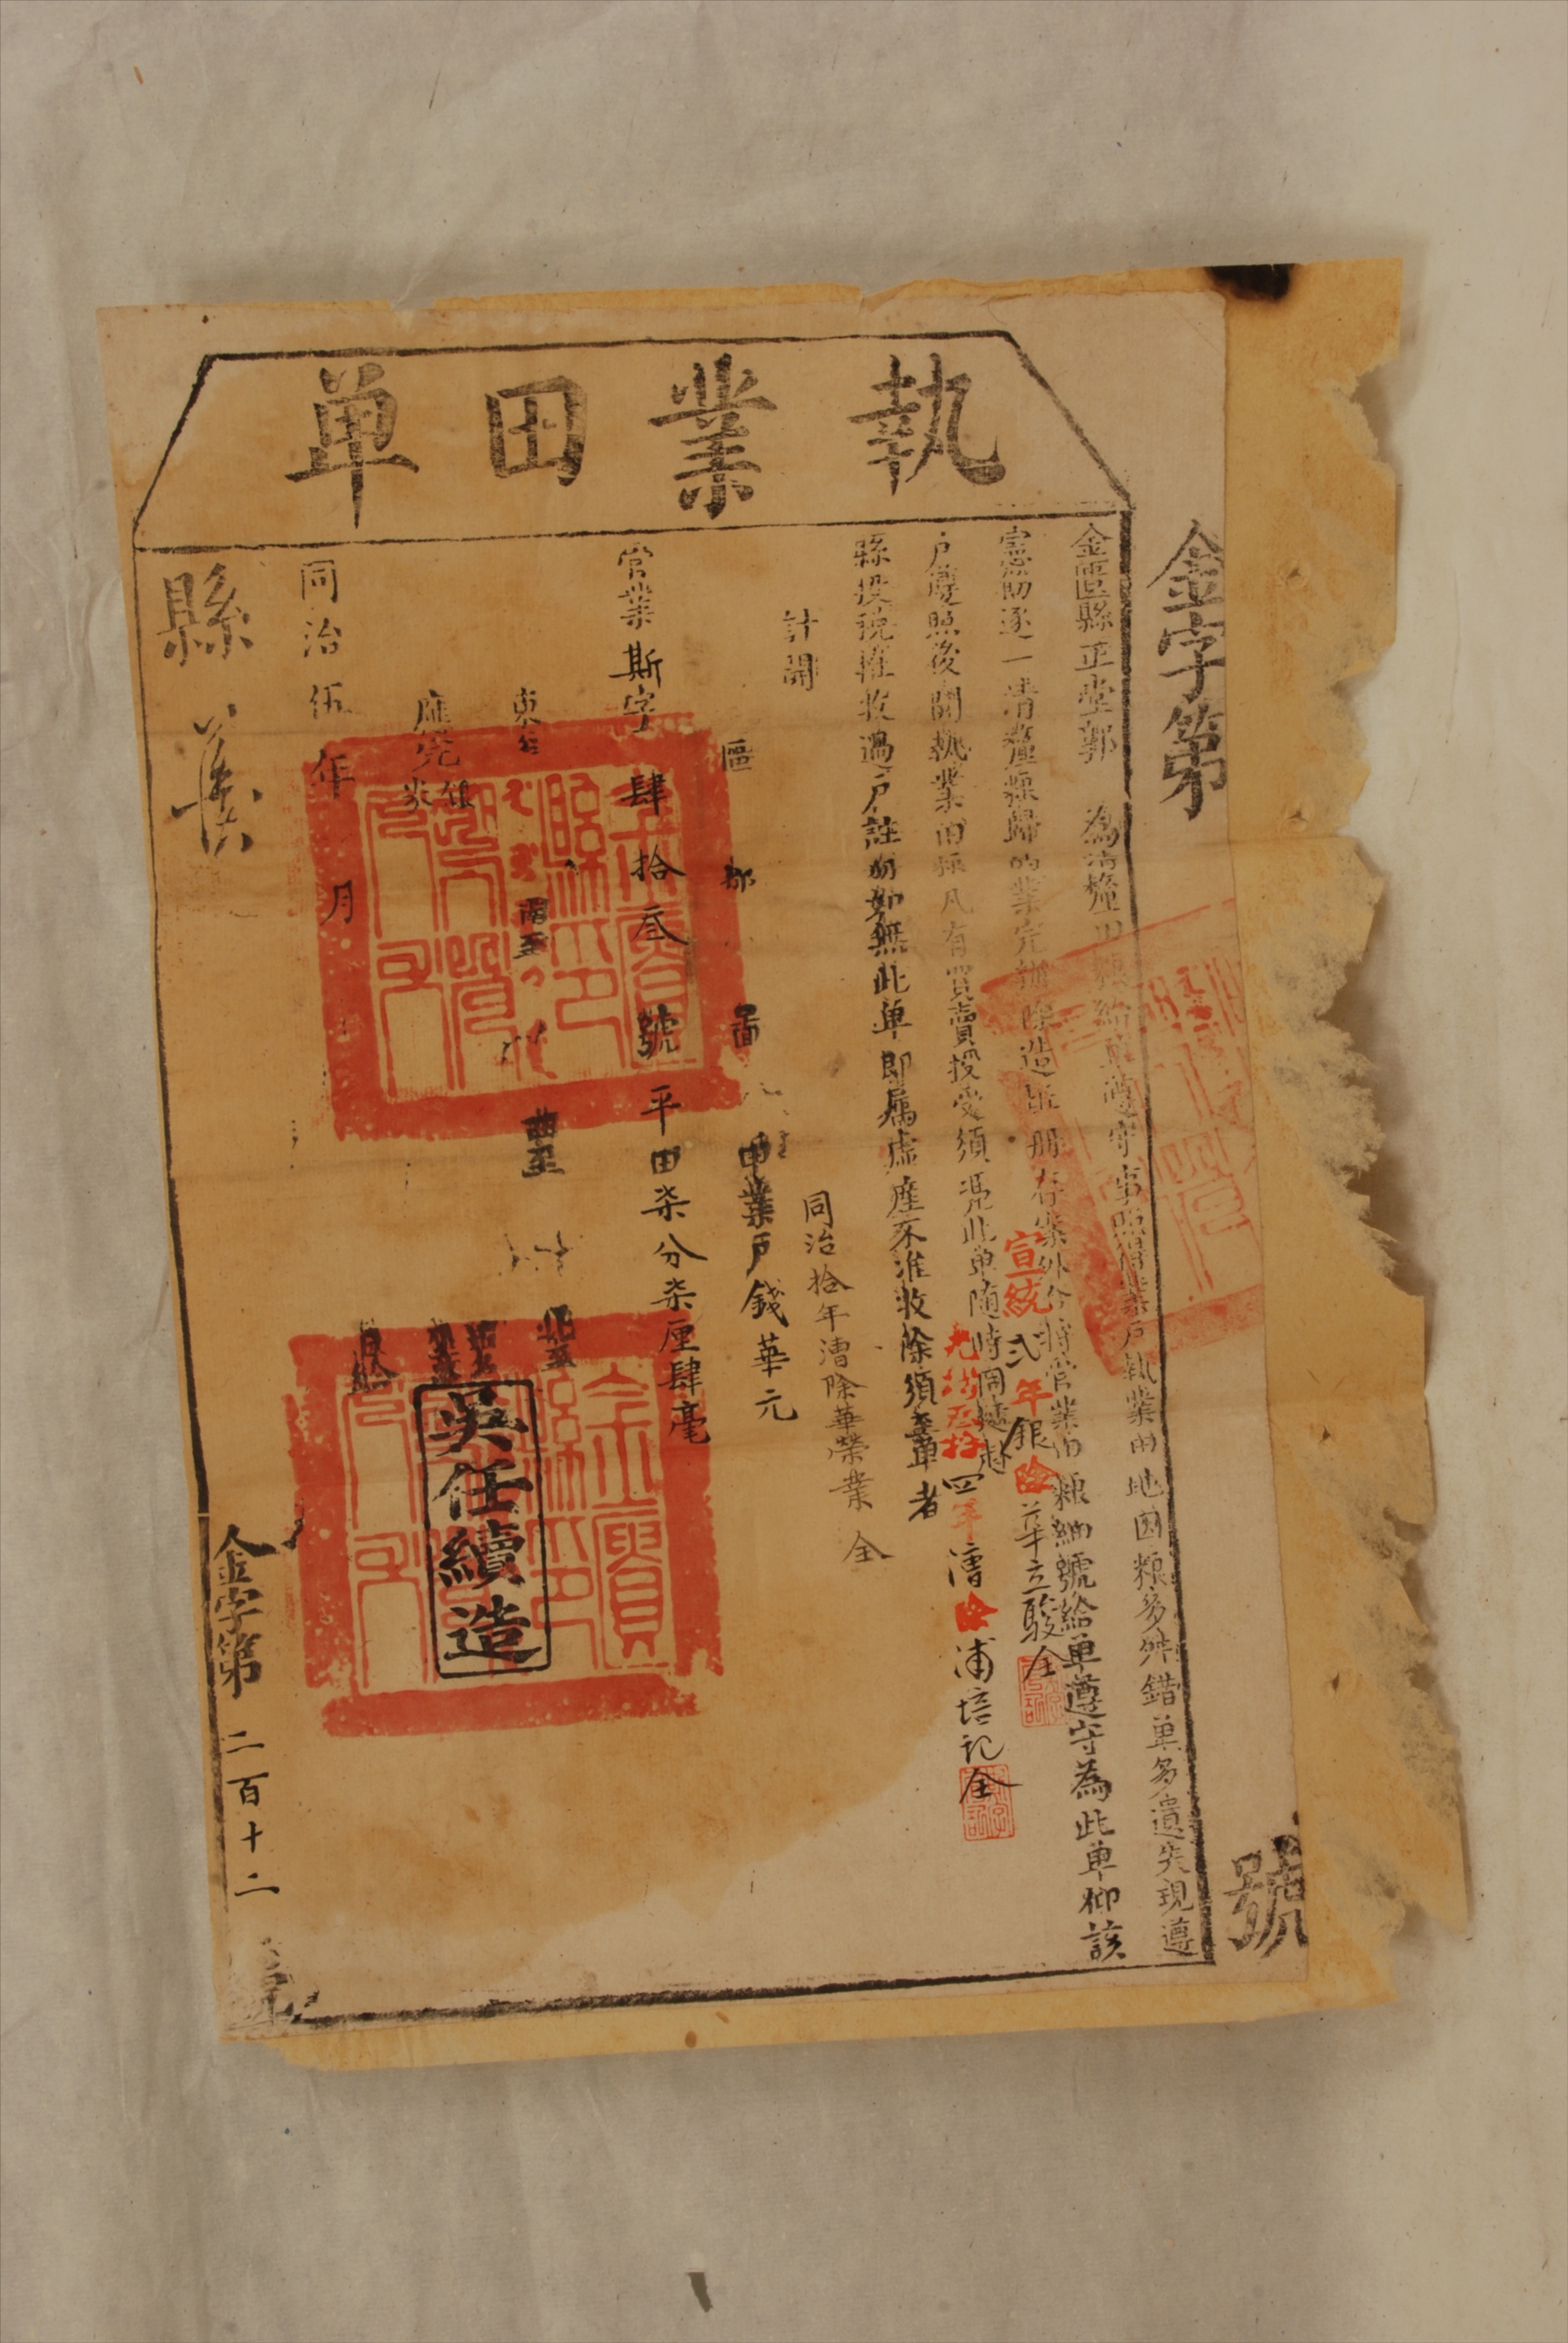 執業田單
金字第
號
金匱縣正堂郭 為清糧田糧給單遵守事照得業戶執業田地因糧多舛錯單多遺失現遵
憲飭逐一清糧糧歸的業完辦除造冊存案外合將管業田糧編號給單遵守為此單仰該
戶遵照後開執業田糧凡有買賣授受須憑此單隨時同赴
縣投稅推收過戶註冊如無此單即屬虛產不准收除須至單者
宣統弍年銀除華立駿全
光緒叁拾四年漕除浦培記全
計開
同治拾年漕除華榮業全
區 都 圖 甲業戶錢華元
營業斯字肆拾叁號平田柒分柒厘肆毫
東至 南至 西至 北至
應完
吳任續造
同治伍年 月
縣
金字第二百十二號